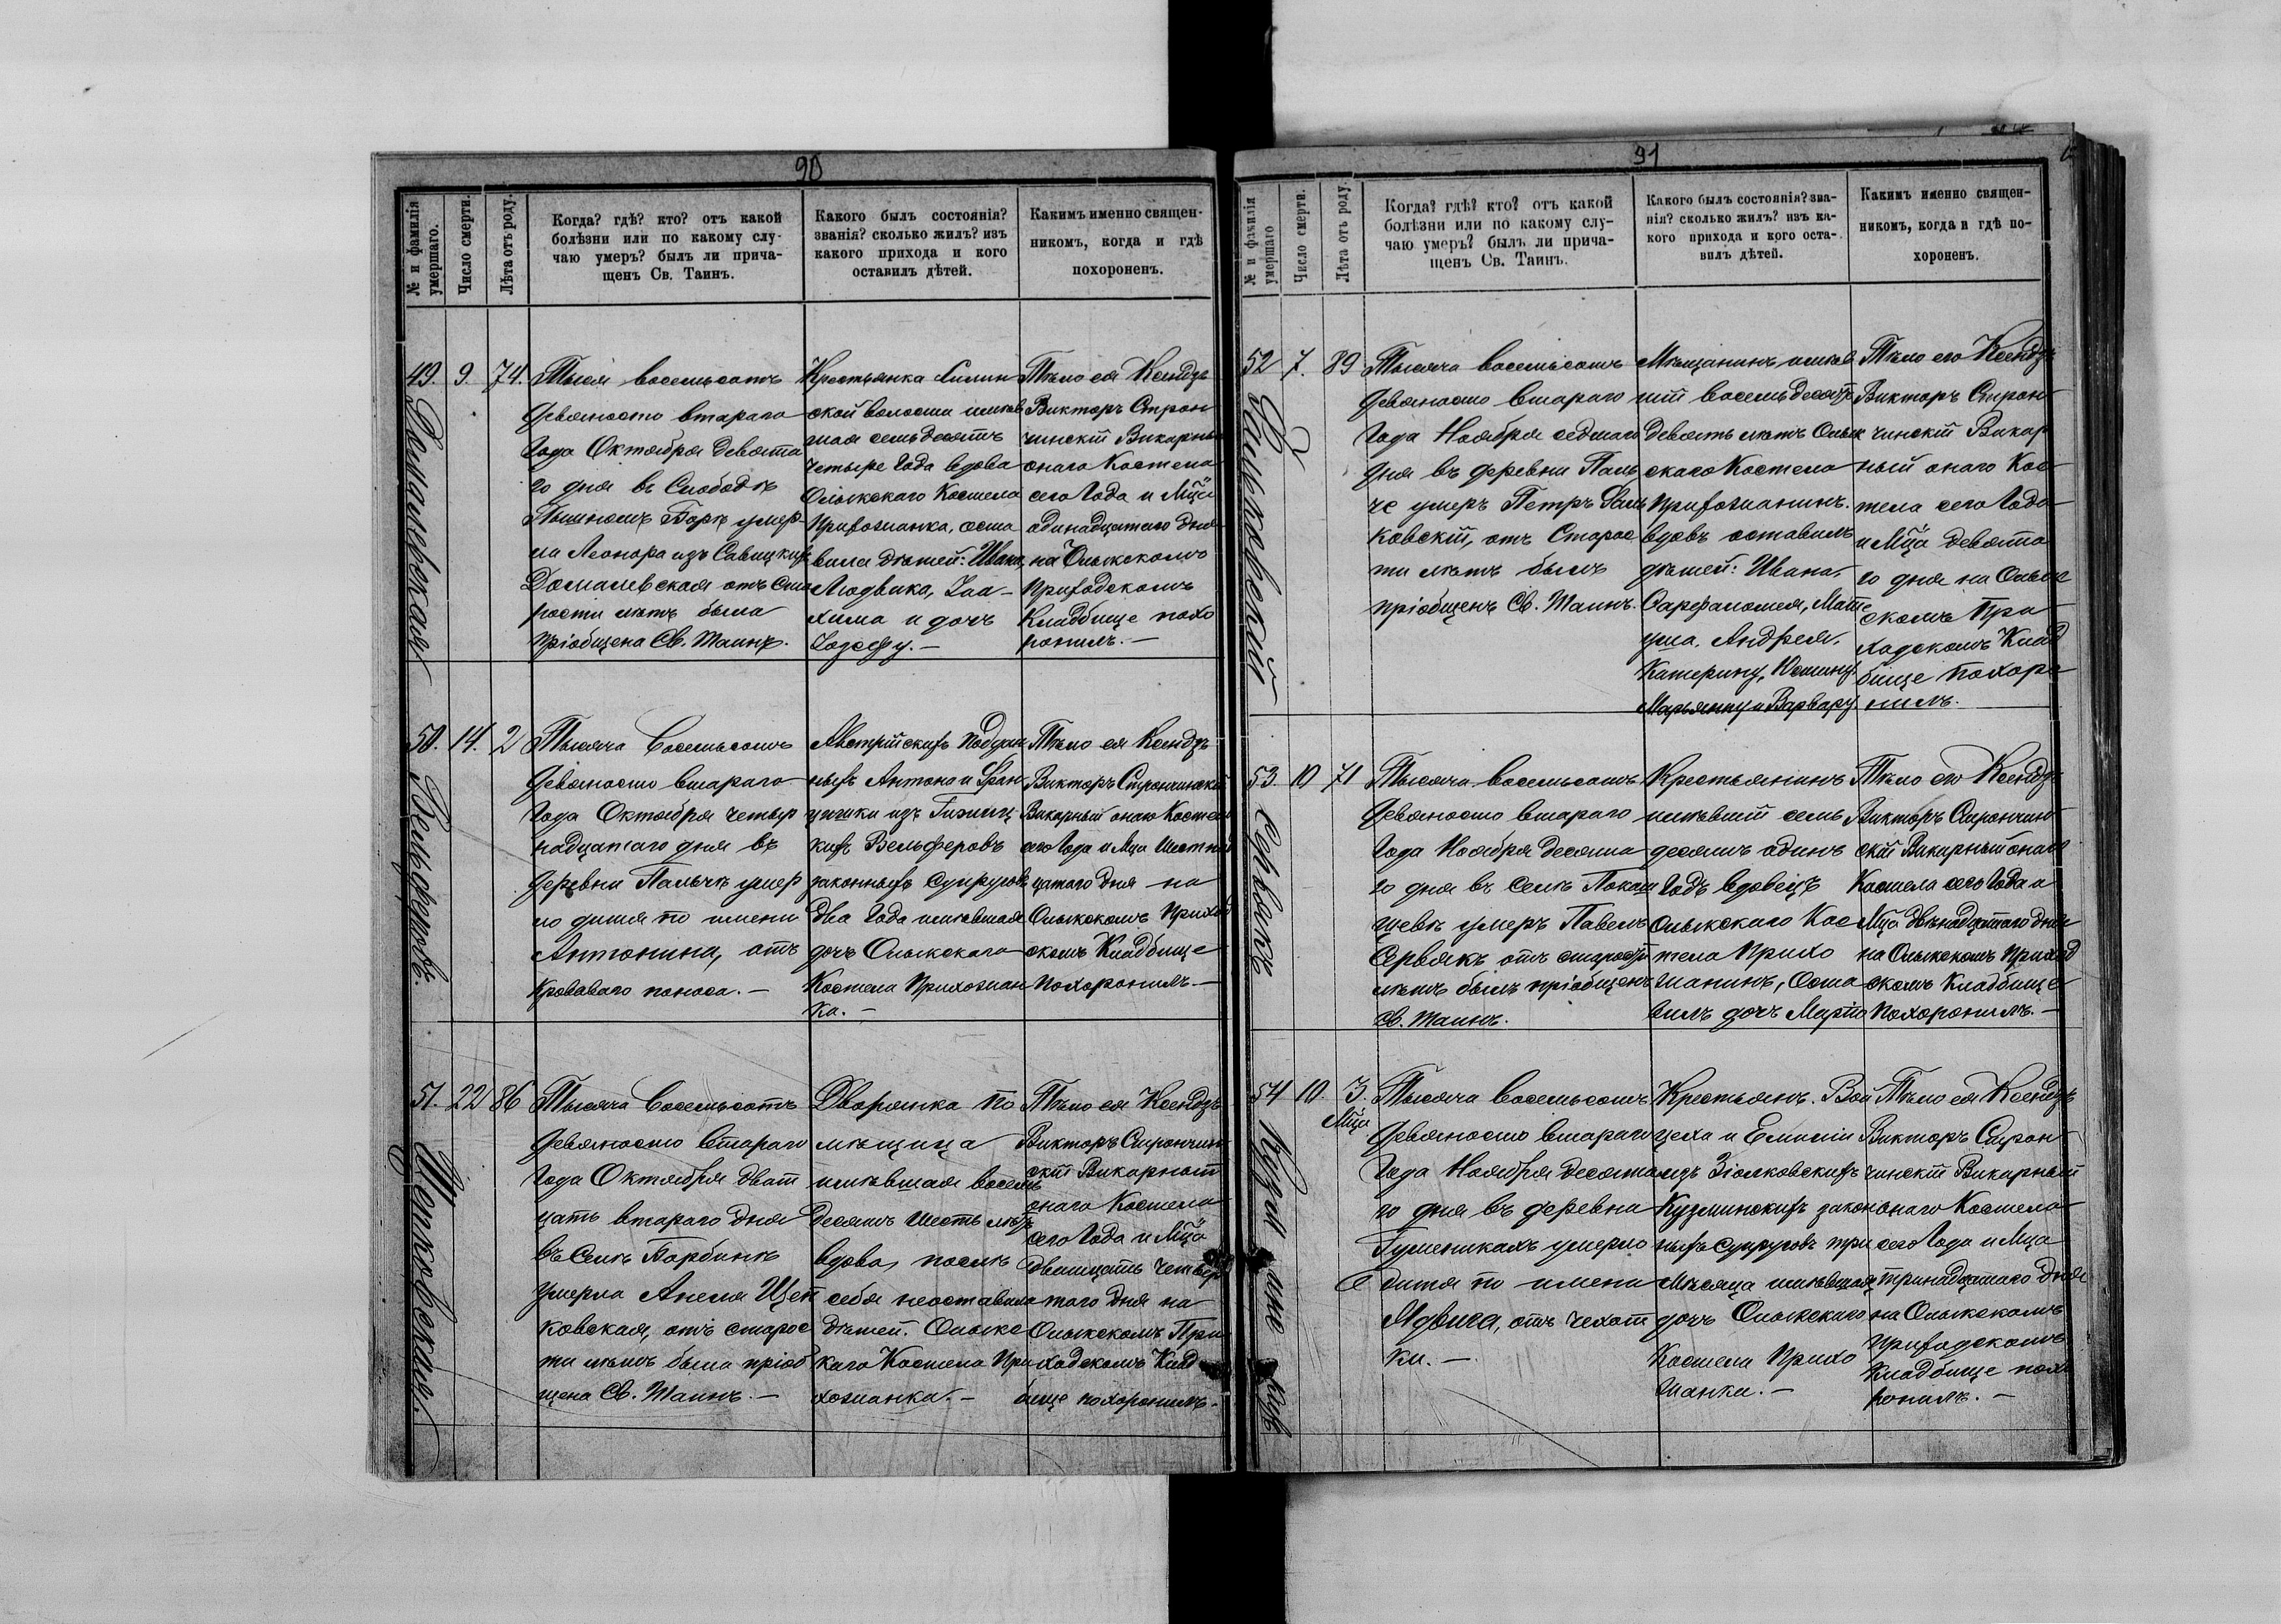 90
№ и фамилія умершаго.
Число смерти.
Лѣта отъ роду.
Когда? гдѣ? кто? отъ какой
болѣзни или по какому слу-
чаю умеръ? былъ ли прича-
щенъ Св. Таинъ.
Какого былъ состоянія?
званія? сколько жилъ? изъ
какого прихода и кого
оставилъ дѣтей.
Какимъ именно священ-
никомъ, когда и гдѣ
похороненъ.
49. 9. 74.
Домалевская
Тысяч восемьсотъ
девяносто втараго
Года Октября девята
го дня въ Слободѣ
умер
ла Леонора изъ Савицкихъ
Домалевская отъ ста
рости лѣтъ была
пріобщена Св. Таинъ.
Крестьянка
ской волости имѣв
шая семьдесятъ
четыре года вдова
Олыкскаго Костела
Прихожанка, оста
вила дѣтей: Ивана,
Людвика, Іоа-
хима и дочь
Іозефу. —
Тѣло ея Ксендзъ
Викторъ Строн
чинскій Викарный
онаго Костела
сего Года и Мца
адинадцатаго дня
на Олыкскомъ
Приходскомъ
Кладбище похо
ронилъ. —
50. 14. 2
Вельферовъ.
Тысяча Восемьсотъ
девяносто втараго
Года Октября четыр
надцатаго дня въ
деревни Пальчѣ умер
ло дитя по имени
Антонина, отъ
Кроваваго поноса. —
Австрійскихъ поддан
ныхъ Антона и Фран
цишки изъ
кихъ Вельферовъ
законныхъ супруговъ
два Года имѣвшая
дочь Олыкскаго
Костела Прихожан
ка. —
Тѣло ея Ксендзъ
Викторъ Строчинскій
Викарный онаго Костела
сего Года и Мца Шестнад
цатаго Дня на
Олыкскомъ Приход
скомъ Кладбище
Похоронилъ. —
51. 22 86
Щепковская.
Тысяча Восемьсотъ
девяносто втараго
Года Октября двад
цать втараго Дня
въ Селѣ Борбинѣ
умерла Анеля Щеп
ковская, отъ старос
ти лѣтъ была пріоб
щена Св. Таинъ. —
Дворянка по
мѣщица
имѣвшая восемь
десятъ шесть лѣтъ
вдова, послѣ
себя неоставила
дѣтей. Олыкс
каго Костела При
хожанка. —
Тѣло ея Ксендзъ
Викторъ Строчин
скій Викарный
онаго Костела
сего Года и Мца
двадцать четвер
таго дня на
Олыкскомъ При
ходскомъ Клад
бище похоронилъ. —
91
№ и фамилія умершаго
Число смерти.
Лѣта отъ роду.
Когда? гдѣ? кто? отъ какой
болѣзни или по какому слу-
чаю умеръ? былъ ли прича-
щенъ Св. Таинъ.
Какого былъ состоянія? зва-
нія? сколько жилъ? изъ ка-
кого прихода и кого оста-
вилъ дѣтей.
Какимъ именно священ-
никомъ, когда и гдѣ по-
хороненъ.
52 7. 89
Тысяча восемьсотъ
девяносто втараго
Года Ноября седмаго
дня въ деревни Паль
че умеръ Петръ
ковскій, отъ Старос
ти лѣтъ былъ
пріобщенъ Св. Таинъ.
Мѣщанинъ имѣв
шій восемьдесятъ
девять лѣтъ Олык
скаго Костела
Прихожанинъ.
вдовъ оставилъ
дѣтей: Ивана,
Варфаломея, Мате
уша, Андрея,
Катерину, Юстину,
Марьянну и Варвару.
Тѣло его Ксендзъ
Викторъ Строн
чинскій Викар
ный онаго Кос
тела сего Года
и Мца девята
го дня на Олык
скомъ При
ходскомъ Клад
бище похоро
нилъ.
53. 10 71
Червякъ
Тысяча восемьсотъ
девяносто втараго
Года Ноября десята
го дня въ селѣ Покаш
чевѣ умеръ Павелъ
Червякъ отъ старости
лѣтъ былъ пріобщенъ
Св. Таинъ.
Крестьянинъ
имѣвшій семь
десятъ одинъ
Годъ вдовецъ
Олыкскаго Кос
тела Прихо
жанинъ, Оста
вилъ дочь
Тѣло его Ксендзъ
Викторъ Строчин
скій Викарный онаго
Костела сего Года и
Мца двѣнадцатаго дня
на Олыкскомъ Приход
скомъ Кладбище
Похоронилъ. —
54 10. 3.
Мца
Тысяча восемьсотъ
девяносто втараго
Года Ноября десята
го дня въ деревни
Гуменикахъ умерло
дитя по имени
Ядвига, отъ чехот
ки. —
Крестьянъ. Вой
цеха и Емиліи
изъ Зіолковскихъ
Кузминскихъ закон
ныхъ супруговъ три
Мѣсяца имѣвшая
дочь Олыкскаго
Костела Прихо
жанка. —
Тѣло ея Ксендзъ
Викторъ Строн
чинскій Викарный
онаго Костела
сего Года и Мца
тринадцатаго дня
на Олыкскомъ
Приходскомъ
Кладбище похо
ронилъ. —